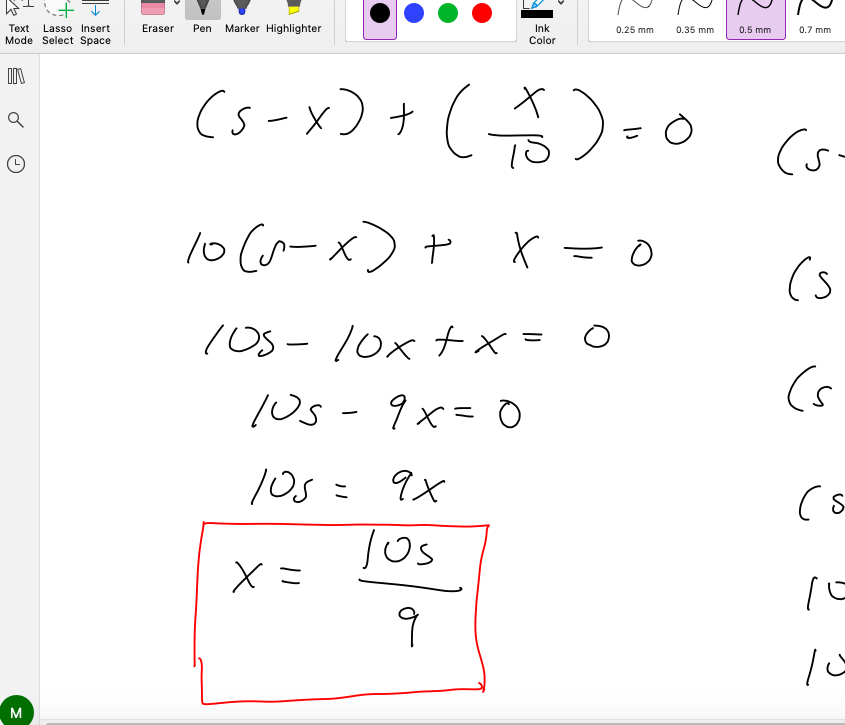 Text Mode
Lasso Select
Insert Space
Eraser
Pen
Marker
Highlighter
Ink Color
0.25 mm
0.35 mm
0.5 mm
0.7 mm
(s - x) + (x/10) = 0
(s-
10(s - x) + x = 0
(s
10s - 10x + x = 0
(s
10s - 9x = 0
10s = 9x
(s
x = 10s/9
10
10
M